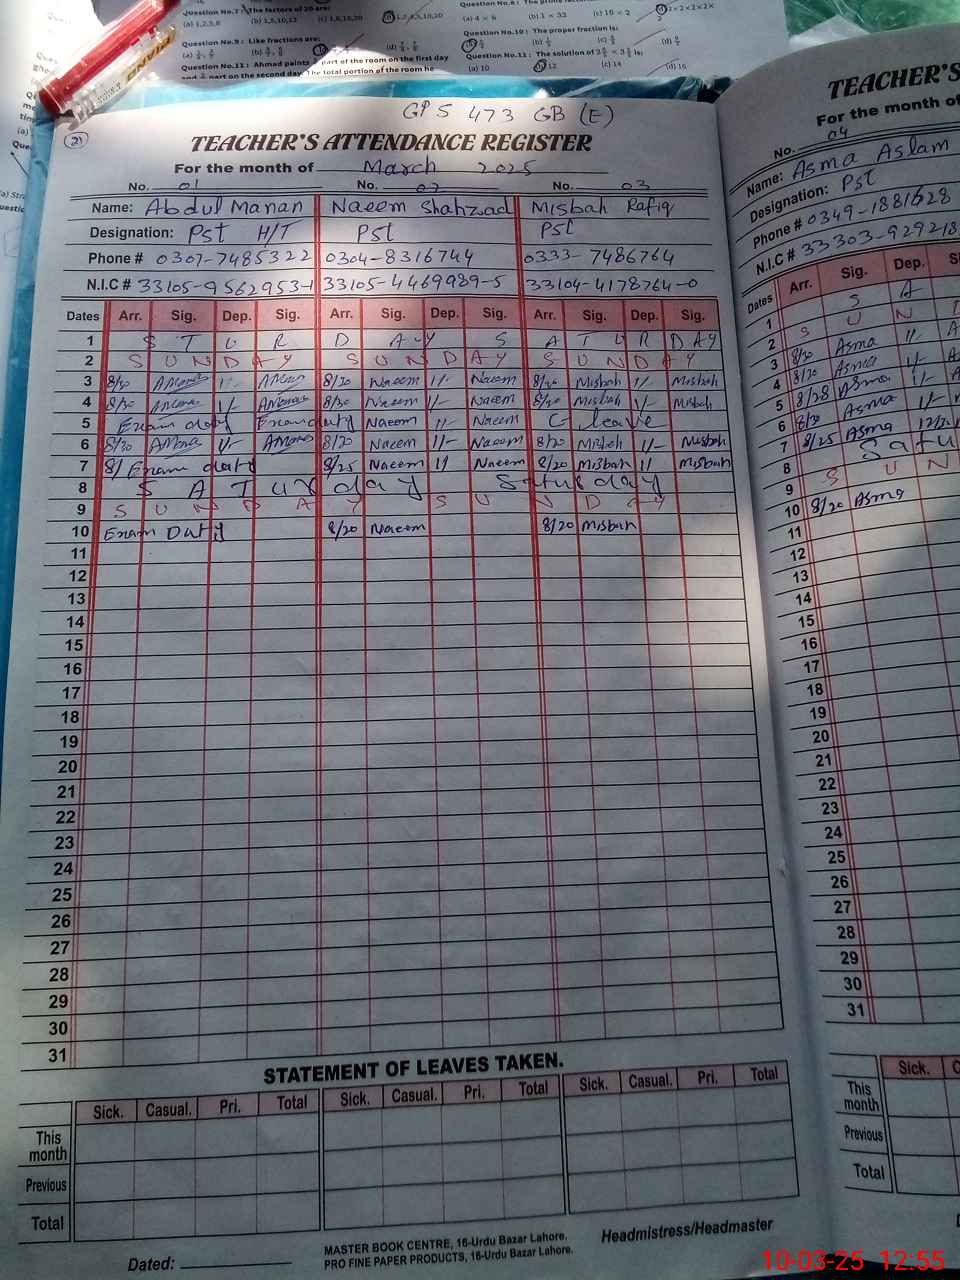 Question No.7: The factors of 20 are:
(a) 1,2,5,8 (b) 1,5,10,12 (c) 1,8,15,20 1,2,4,5,10,20
(a) 4 × 8 (b) 1 × 32 (c) 16 × 2 2×2×2×2×2
Question No.9 : Like fractions are:
Question No.10 : The proper fraction is:
Question No.11 : Ahmad paints part of the room on the first day
part on the second day. The total portion of the room he
(a) 10 (b) 12 (c) 14 (d) 16
21
GPS 473 GB (E)
TEACHER'S ATTENDANCE REGISTER
For the month of March 2025
No. 01 No. 02 No. 03
Name: Abdul Manan Naeem Shahzad Misbah Rafiq
Designation: Pst H/T Pst Pst
Phone # 0307-7485322 0304-8316744 0333-7486764
N.I.C # 33105-9562953-1 33105-4469989-5 33104-4178764-0
Dates Arr. Sig. Dep. Sig. Arr. Sig. Dep. Sig. Arr. Sig. Dep. Sig.
1 S T U R D A Y S A T U R D A Y
2 S U N D A Y S U N D A Y S U N D A Y
3 8/30 AManan 1/- AManan 8/20 Naeem 1/- Naeem 8/20 Misbah 1/- Misbah
4 8/30 AManan 1/- AManan 8/30 Naeem 1/- Naeem 8/20 Misbah 1/- Misbah
5 Exam duty Exam duty Naeem 1/- Naeem C- leave
6 8/30 AManan 1/- AManan 8/20 Naeem 1/- Naeem 8/20 Misbah 1/- Misbah
7 8/ Exam duty 8/25 Naeem 1/ Naeem 8/20 Misbah 1/ Misbah
8 S A T u r d a y Saturday
9 S U N D A Y S U N D A Y
10 Exam Duty 8/20 Naeem 8/20 Misbah
11
12
13
14
15
16
17
18
19
20
21
22
23
24
25
26
27
28
29
30
31
STATEMENT OF LEAVES TAKEN.
Sick. Casual. Pri. Total Sick. Casual. Pri. Total Sick. Casual. Pri. Total
This month
Previous
Total
Dated:
MASTER BOOK CENTRE, 16-Urdu Bazar Lahore.
PRO FINE PAPER PRODUCTS, 16-Urdu Bazar Lahore.
Headmistress/Headmaster
TEACHER'S
For the month of
No. 04
Name: Asma Aslam
Designation: Pst
Phone # 0349-1881628
N.I.C # 33303-929218
Dates Arr. Sig. Dep.
1 S A
2 S U N D
3 8/30 Asma 1/-
4 8/20 Asma 1/-
5 8/28 Asma 1/-
6 8/30 Asma 1/-
7 8/25 Asma
8 Satu
9 S U N
10 8/20 Asma
11
12
13
14
15
16
17
18
19
20
21
22
23
24
25
26
27
28
29
30
31
Sick.
This month
Previous
Total
10-03-25 12:55